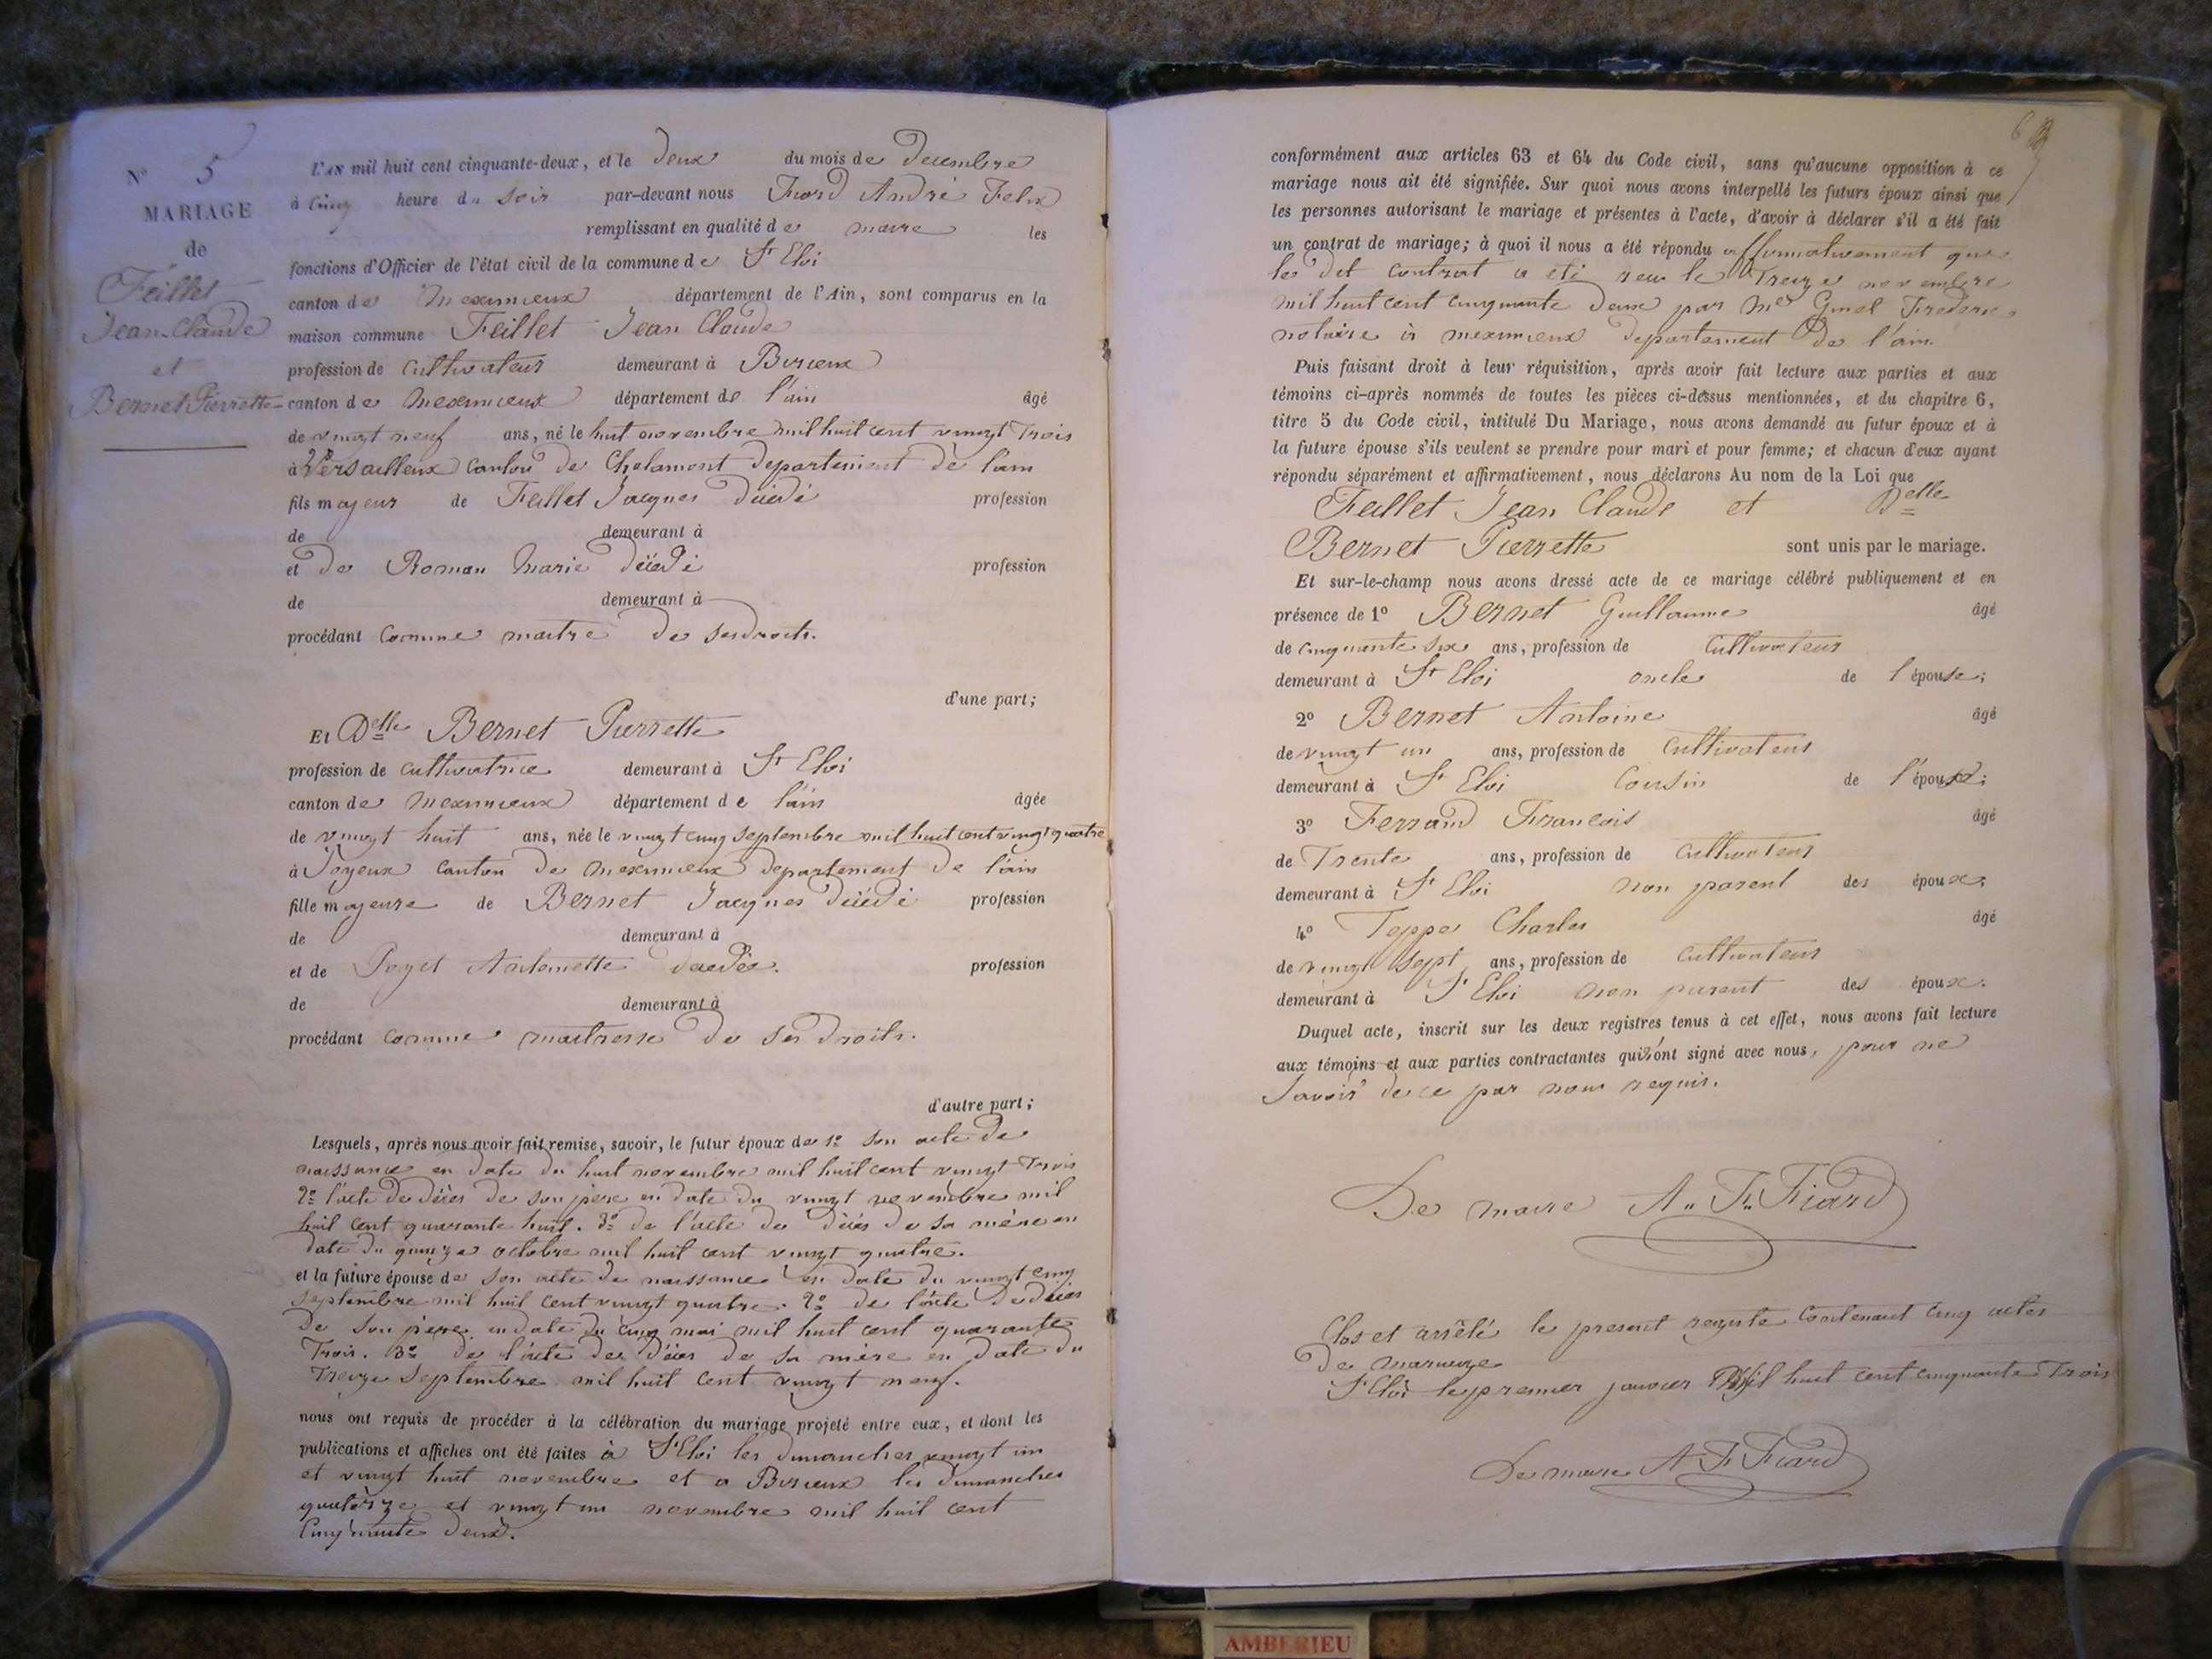 N° 5
MARIAGE
de
Feillet
Jean-Claude
et
Bernet Pierrette
L'AN mil huit cent cinquante-deux, et le deux du mois de decembre
à cinq heure du soir par-devant nous Fiard André Felix
remplissant en qualité de maire les
fonctions d'Officier de l'état civil de la commune de St Eloi
canton de meximieux département de l'Ain, sont comparus en la
maison commune Feillet Jean Claude
profession de cultivateur demeurant à Birieux
canton de meximieux département de l'ain âgé
de vingt neuf ans, né le huit novembre mil huit cent vingt Trois
à Versailleux canton de Chalamont departement de l'ain
fils majeur de Feillet Jacques décédé profession
de demeurant à
et de Roman Marie décédé profession
de demeurant à
procédant comme maitre de ses droits.
d'une part;
Et Delle Bernet Pierrette
profession de cultivatrice demeurant à St Eloi
canton de meximieux département de l'ain âgée
de vingt huit ans, née le vingt cinq septembre mil huit cent vingt quatre
à Joyeux canton de meximieux departement de l'ain
fille majeure de Bernet Jacques décédé profession
de demeurant à
et de Poget Antoinette décédée. profession
de demeurant à
procédant comme maitresse de ses droits.
d'autre part;
Lesquels, après nous avoir fait remise, savoir, le futur époux de 1° son acte de
naissance en date du huit novembre mil huit cent vingt Trois
2° l'acte de décès de son pere en date du vingt novembre mil
huit cent quarante huit. 3° de l'acte de décès de sa mère en
date du quinze octobre mil huit cent vingt quatre.
et la future épouse de son acte de naissance en date du vingt cinq
septembre mil huit cent vingt quatre. 2° de l'acte de décès
de son pere en date du cinq mai mil huit cent quarante
Trois. 3° de l'acte de décès de sa mère en date du
Treize septembre mil huit cent vingt neuf.
nous ont requis de procéder à la célébration du mariage projeté entre eux, et dont les
publications et affiches ont été faites à St Eloi les dimanches vingt un
et vingt huit novembre et a Birieux les dimanches
quatorze et vingt un novembre mil huit cent
cinquante deux.
6
conformément aux articles 63 et 64 du Code civil, sans qu'aucune opposition à ce
mariage nous ait été signifiée. Sur quoi nous avons interpellé les futurs époux ainsi que
les personnes autorisant le mariage et présentes à l'acte, d'avoir à déclarer s'il a été fait
un contrat de mariage; à quoi il nous a été répondu affirmativement que
le dit contrat a été recu le Treize novembre
mil huit cent cinquante deux par Me Frederic
notaire à meximieux departement de l'ain.
Puis faisant droit à leur réquisition, après avoir fait lecture aux parties et aux
témoins ci-après nommés de toutes les pièces ci-dessus mentionnées, et du chapitre 6,
titre 5 du Code civil, intitulé Du Mariage, nous avons demandé au futur époux et à
la future épouse s'ils veulent se prendre pour mari et pour femme; et chacun d'eux ayant
répondu séparément et affirmativement, nous déclarons Au nom de la Loi que
Feillet Jean Claude et Delle
Bernet Pierrette sont unis par le mariage.
Et sur-le-champ nous avons dressé acte de ce mariage célébré publiquement et en
présence de 1° Bernet Guillaume âgé
de cinquante six ans, profession de cultivateur
demeurant à St Eloi oncle de l'épouse;
2° Bernet Antoine âgé
de vingt un ans, profession de cultivateur
demeurant à St Eloi Cousin de l'épouse;
3° Ferrand Francois âgé
de Trente ans, profession de cultivateur
demeurant à St Eloi non parent des époux;
4° Teppe Charles âgé
de vingt sept ans, profession de cultivateur
demeurant à St Eloi non parent des époux.
Duquel acte, inscrit sur les deux registres tenus à cet effet, nous avons fait lecture
aux témoins et aux parties contractantes qui ont signé avec nous, pour ne
savoir de ce par nous requis.
Le maire A. F. Fiard
Clos et arrêté le present registre contenant cinq actes
de mariage
St Eloi le premier janvier Mil huit cent cinquante Trois
Le maire A. F. Fiard
AMBERIEU